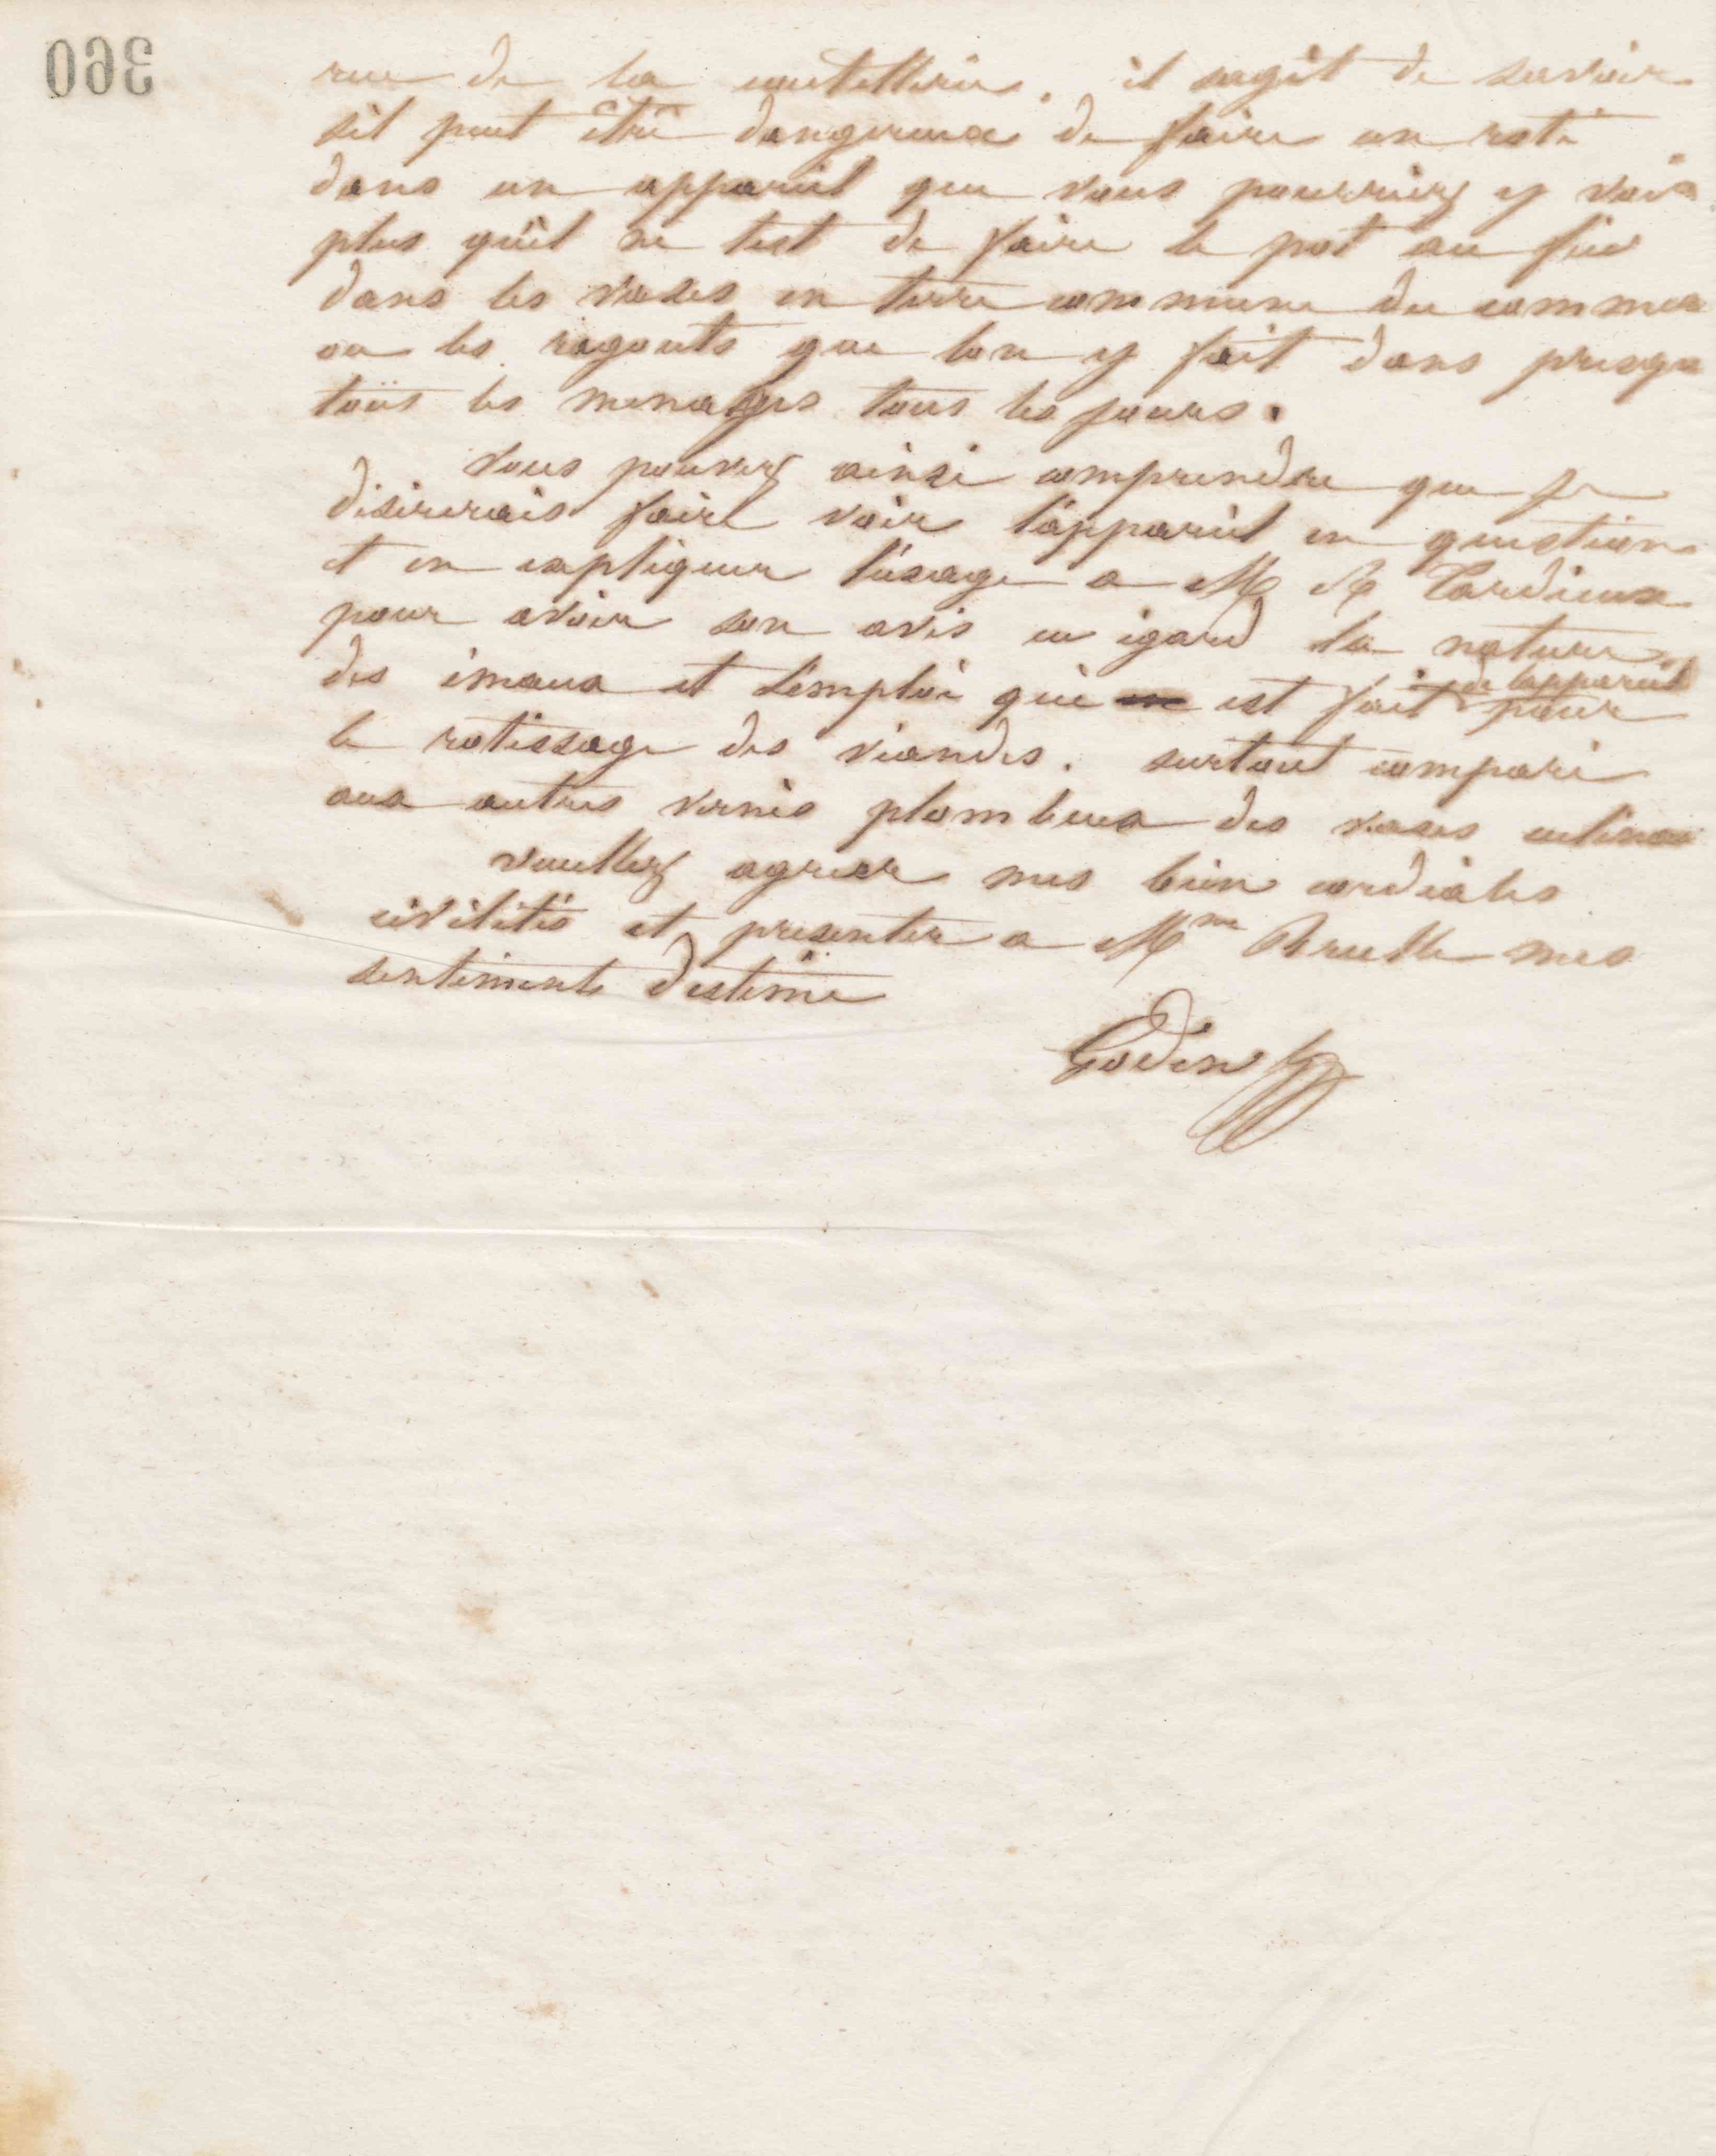 360
rue de la coutellerie. il sagit de savoir
sil peut être dangereux de faire un roti
dans un appareil que vous pourriez y voir
plus quil ne lest de faire le pot au feu
dans les vases en terre commune du commerce
ou les ragouts que lon y fait dans presque
tous les menages tous les jours.
Vous pouvez ainsi comprendre que je
désirerais faire voir l'appareil en question
et en expliquer l'usage a M A Tardieux
pour avoir son avis eu égard la nature
de lappareil
des émaux et l'emploi qui est fait pour
le rotissage des viandes. surtout comparé
aux autres vernis plombeux des vases culinai
veuillez agreer mes bien cordiales
civilités et presenter a Mme Brulle mes
sentiments d'estime
Godin